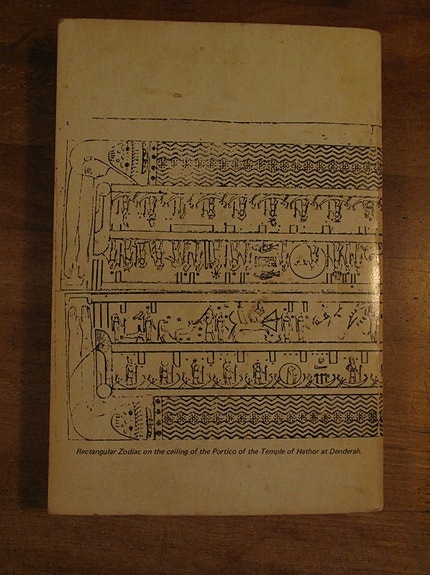 Rectangular Zodiac on the ceiling of the Portico of the Temple of Hathor at Denderah.